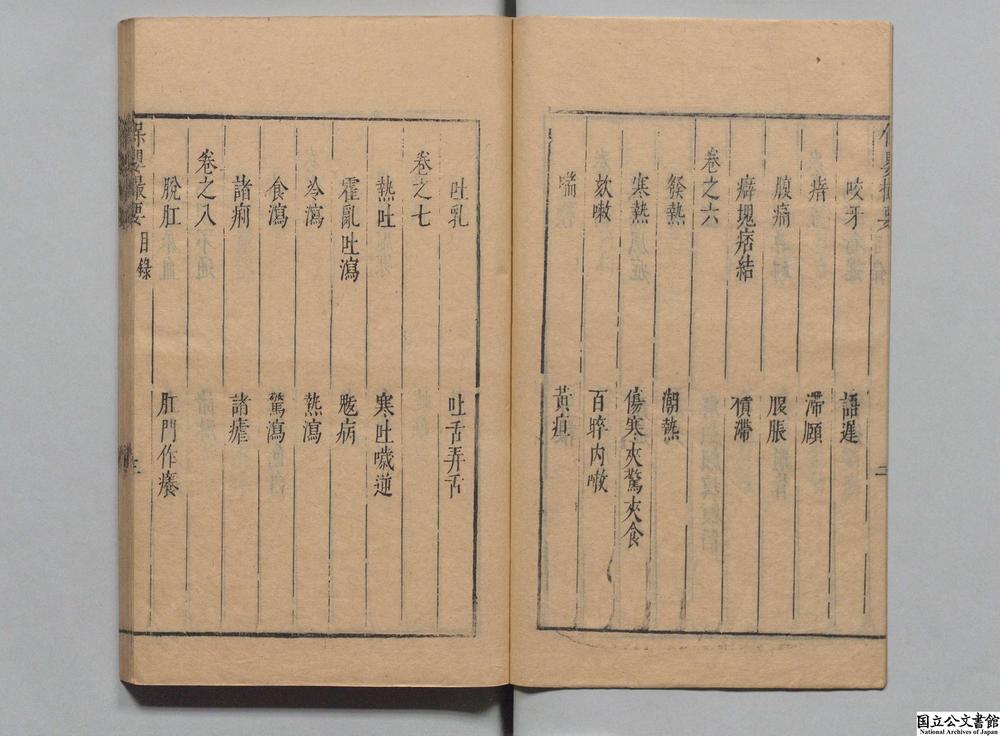 咬牙 語遲
瘖 滯頤
腹痛 腹脹
癖塊痞結 積滯
卷之六
發熱 潮熱
寒熱 傷寒夾驚夾食
欬嗽 百晬内嗽
喘 黃疸
二
吐乳 吐舌弄舌
卷之七
熱吐 寒吐噦逆
霍亂吐瀉 魃病
冷瀉 熱瀉
食瀉 驚瀉
諸痢 諸瘧
卷之八
脫肛 肛門作癢
保嬰撮要 目錄 三
国立公文書館
National Archives of Japan